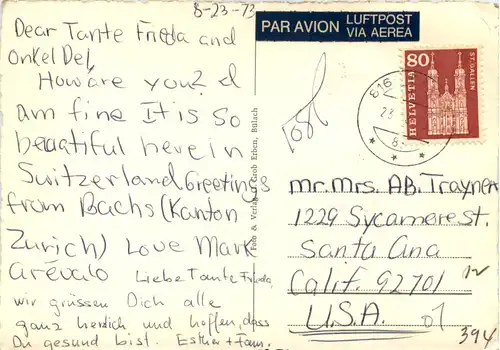 8-23-73
Dear Tante Frieda and
Onkel Del,
How are you? I
am fine It is so
beautiful here in
Switzerland Greetings
from Bachs (Kanton
Zurich) Love Mark
arévalo Liebe Tante Frieda,
wir grüssen Dich alle
ganz herzlich und hoffen, dass
Du gesund bist. Esther + Fam.
Foto & Verlag O. Grob Erben, Bülach
PAR AVION LUFTPOST
VIA AEREA
80
HELVETIA
ST. GALLEN
816
23
8
Mr. Mrs. AB. Trayner
1229 Sycamore st.
Santa Ana
Calif. 92701
U.S.A.
394